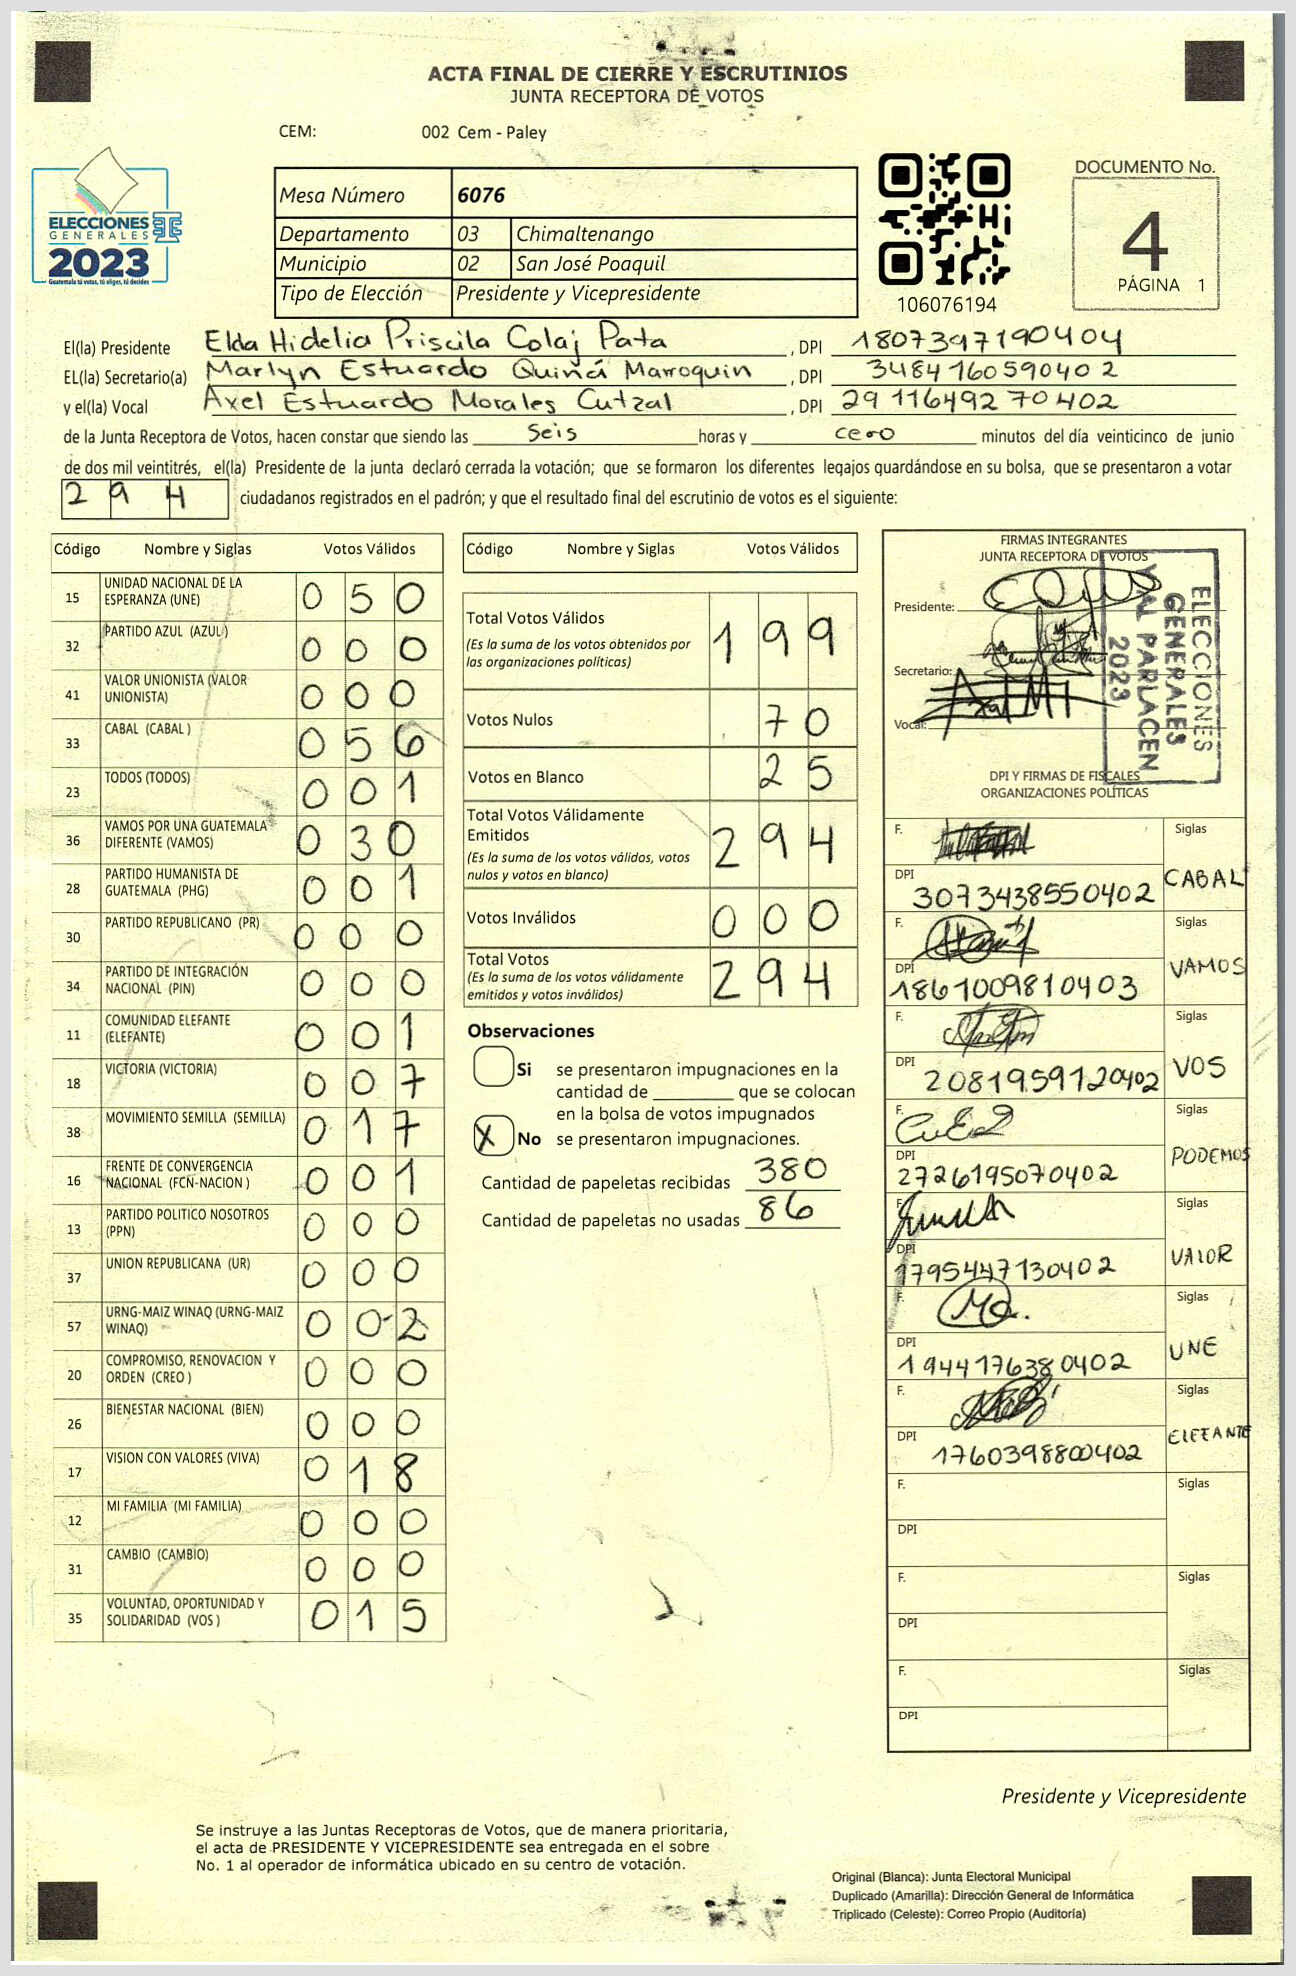 ACTA FINAL DE CIERRE Y ESCRUTINIOS
JUNTA RECEPTORA DE VOTOS
CEM: 002 Cem - Paley
ELECCIONES
GENERALES
2023
Guatemala tú votas, tú eliges, tú decides
Mesa Número 6076
Departamento 03 Chimaltenango
Municipio 02 San José Poaquil
Tipo de Elección Presidente y Vicepresidente
Hi
106076194
DOCUMENTO No.
4
PÁGINA 1
El(la) Presidente Elda Hidelia Priscila Colaj Pata , DPI 1807397190404
EL(la) Secretario(a) Marlyn Estuardo Quiñá Marroquin , DPI 3484160590402
y el(la) Vocal Axel Estuardo Morales Cutzal , DPI 2911649270402
de la Junta Receptora de Votos, hacen constar que siendo las seis horas y cero minutos del día veinticinco de junio
de dos mil veintitrés, el(la) Presidente de la junta declaró cerrada la votación; que se formaron los diferentes legajos quardándose en su bolsa, que se presentaron a votar
294 ciudadanos registrados en el padrón; y que el resultado final del escrutinio de votos es el siguiente:
Código Nombre y Siglas Votos Válidos
15 UNIDAD NACIONAL DE LA ESPERANZA (UNE) 0 5 0
32 PARTIDO AZUL (AZUL) 0 0 0
41 VALOR UNIONISTA (VALOR UNIONISTA) 0 0 0
33 CABAL (CABAL) 0 5 6
23 TODOS (TODOS) 0 0 1
36 VAMOS POR UNA GUATEMALA DIFERENTE (VAMOS) 0 3 0
28 PARTIDO HUMANISTA DE GUATEMALA (PHG) 0 0 1
30 PARTIDO REPUBLICANO (PR) 0 0 0
34 PARTIDO DE INTEGRACIÓN NACIONAL (PIN) 0 0 0
11 COMUNIDAD ELEFANTE (ELEFANTE) 0 0 1
18 VICTORIA (VICTORIA) 0 0 7
38 MOVIMIENTO SEMILLA (SEMILLA) 0 1 7
16 FRENTE DE CONVERGENCIA NACIONAL (FCN-NACION) 0 0 1
13 PARTIDO POLITICO NOSOTROS (PPN) 0 0 0
37 UNION REPUBLICANA (UR) 0 0 0
57 URNG-MAIZ WINAQ (URNG-MAIZ WINAQ) 0 0 2
20 COMPROMISO, RENOVACION Y ORDEN (CREO) 0 0 0
26 BIENESTAR NACIONAL (BIEN) 0 0 0
17 VISION CON VALORES (VIVA) 0 1 8
12 MI FAMILIA (MI FAMILIA) 0 0 0
31 CAMBIO (CAMBIO) 0 0 0
35 VOLUNTAD, OPORTUNIDAD Y SOLIDARIDAD (VOS) 0 1 5
Código Nombre y Siglas Votos Válidos
Total Votos Válidos 1 9 9
(Es la suma de los votos obtenidos por
las organizaciones políticas)
Votos Nulos 7 0
Votos en Blanco 2 5
Total Votos Válidamente
Emitidos 2 9 4
(Es la suma de los votos válidos, votos
nulos y votos en blanco)
Votos Inválidos 0 0 0
Total Votos 2 9 4
(Es la suma de los votos válidamente
emitidos y votos inválidos)
Observaciones
Si se presentaron impugnaciones en la
cantidad de ________ que se colocan
en la bolsa de votos impugnados
X No se presentaron impugnaciones.
Cantidad de papeletas recibidas 380
Cantidad de papeletas no usadas 86
FIRMAS INTEGRANTES
JUNTA RECEPTORA DE VOTOS
Presidente:
Secretario:
Vocal:
ELECCIONES
GENERALES
Y AL PARLACEN
2023
DPI Y FIRMAS DE FISCALES
ORGANIZACIONES POLÍTICAS
F. Siglas
DPI 3073438550402 CABAL
F. Siglas
DPI 1861009810403 VAMOS
F. Siglas
DPI 2081959120402 VOS
F. Siglas
DPI 2726195070402 PODEMOS
F. Siglas
DPI 1795447130402 VALOR
F. Siglas
DPI 1944176380402 UNE
F. Siglas
DPI 1760398800402 ELEFANTE
F. Siglas
DPI
F. Siglas
DPI
F. Siglas
DPI
Presidente y Vicepresidente
Se instruye a las Juntas Receptoras de Votos, que de manera prioritaria,
el acta de PRESIDENTE Y VICEPRESIDENTE sea entregada en el sobre
No. 1 al operador de informática ubicado en su centro de votación.
Original (Blanca): Junta Electoral Municipal
Duplicado (Amarilla): Dirección General de Informática
Triplicado (Celeste): Correo Propio (Auditoría)